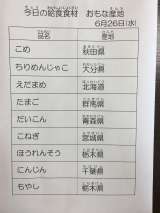 今日の給食食材 おもな産地
6月26日(水)
食材 産地
こめ 秋田県
ちりめんじゃこ 大分県
えだまめ 北海道
たまご 群馬県
だいこん 青森県
こねぎ 宮城県
ほうれんそう 栃木県
にんじん 千葉県
もやし 栃木県